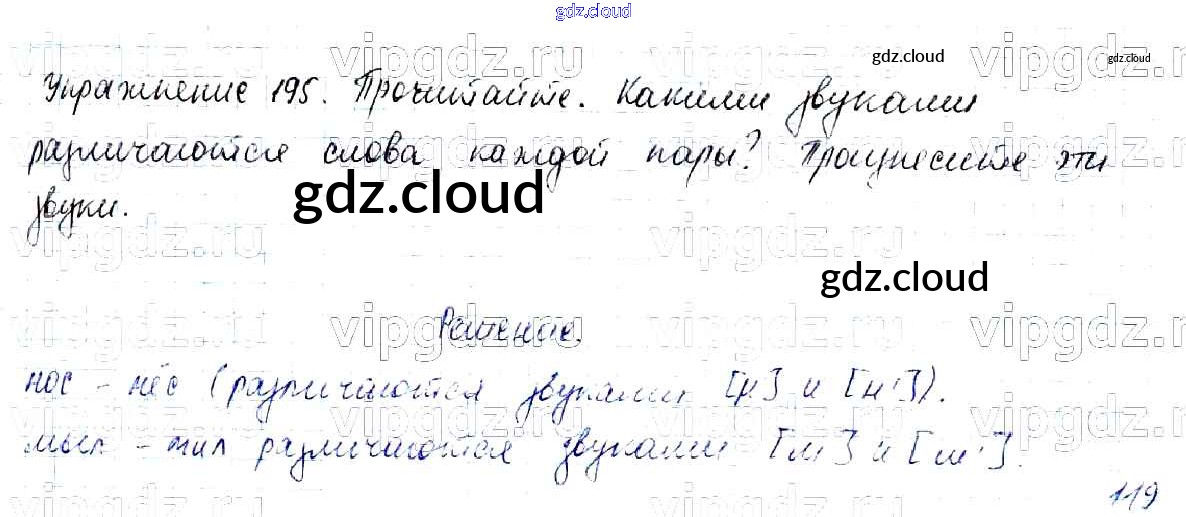 gdz.cloud
vipgdz.ru vipgdz.ru vipgdz.ru
gdz.cloud gdz.cloud
Упражнение 195. Прочитайте. Какими звуками
различаются слова каждой пары? Произнесите эти
звуки.
gdz.cloud
vipgdz.ru vipgdz.ru
gdz.cloud
Решение.
vipgdz.ru vipgdz.ru
нос – нёс (различаются звуками [н] и [н']).
мыл – мил различаются звуками [м] и [м'].
vipgdz.ru vipgdz.ru
119